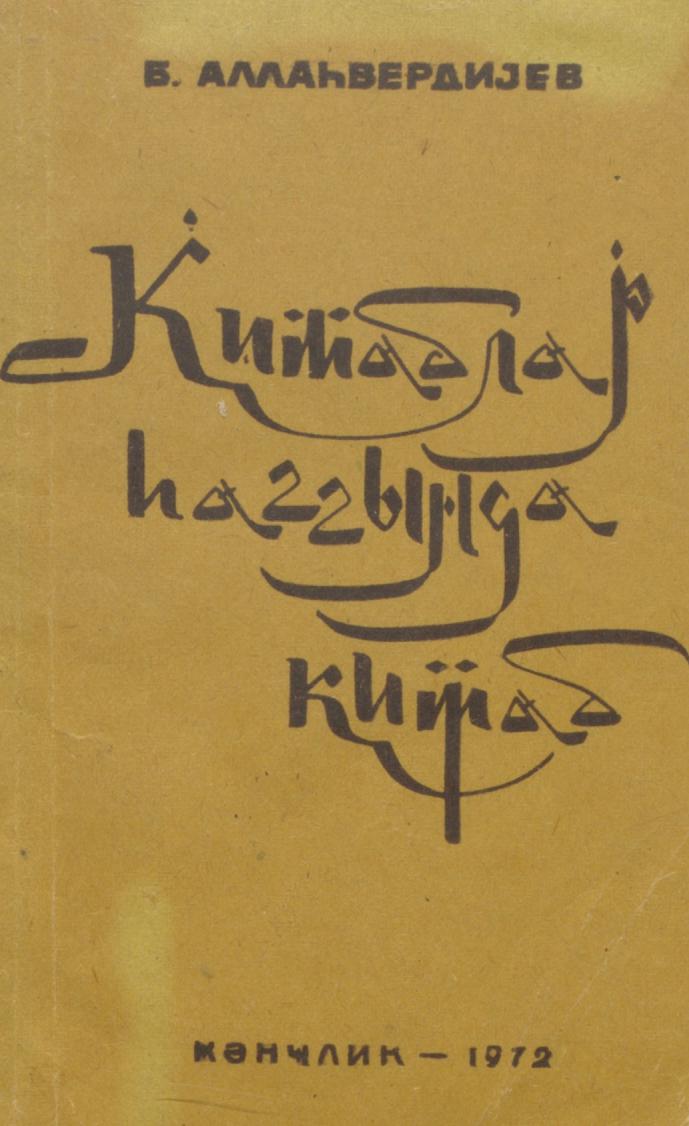 Б. АЛЛАҺВЕРДИЈЕВ
Китаблар
һаггында
китаб
ҜӘНҸЛИК — 1972